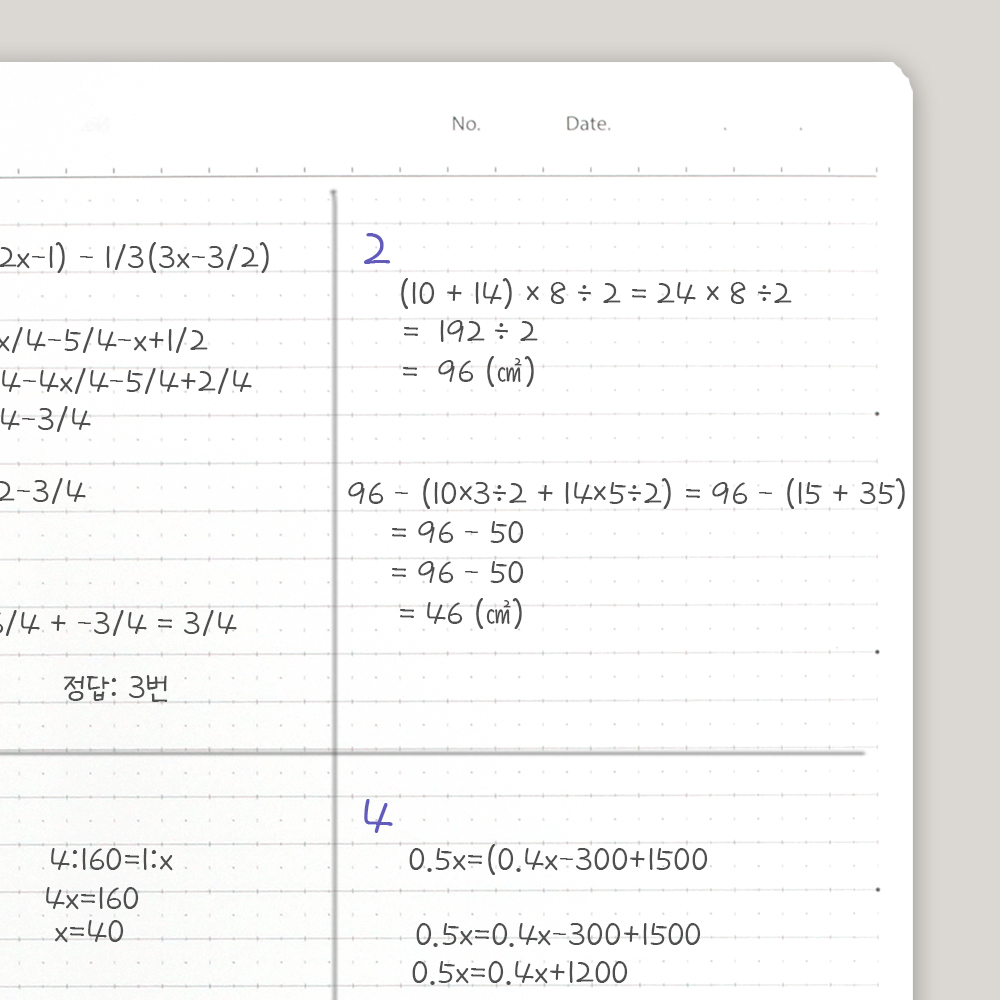 No. Date. . .
2x-1) - 1/3(3x-3/2)
x/4-5/4-x+1/2
4-4x/4-5/4+2/4
4-3/4
2-3/4
/4 + -3/4 = 3/4
정답: 3번
2
(10 + 14) × 8 ÷ 2 = 24 × 8 ÷2
= 192 ÷ 2
= 96 (㎠)
96 - (10×3÷2 + 14×5÷2) = 96 - (15 + 35)
= 96 - 50
= 96 - 50
= 46 (㎠)
4:160=1:x
4x=160
x=40
4
0.5x=(0.4x-300+1500
0.5x=0.4x-300+1500
0.5x=0.4x+1200